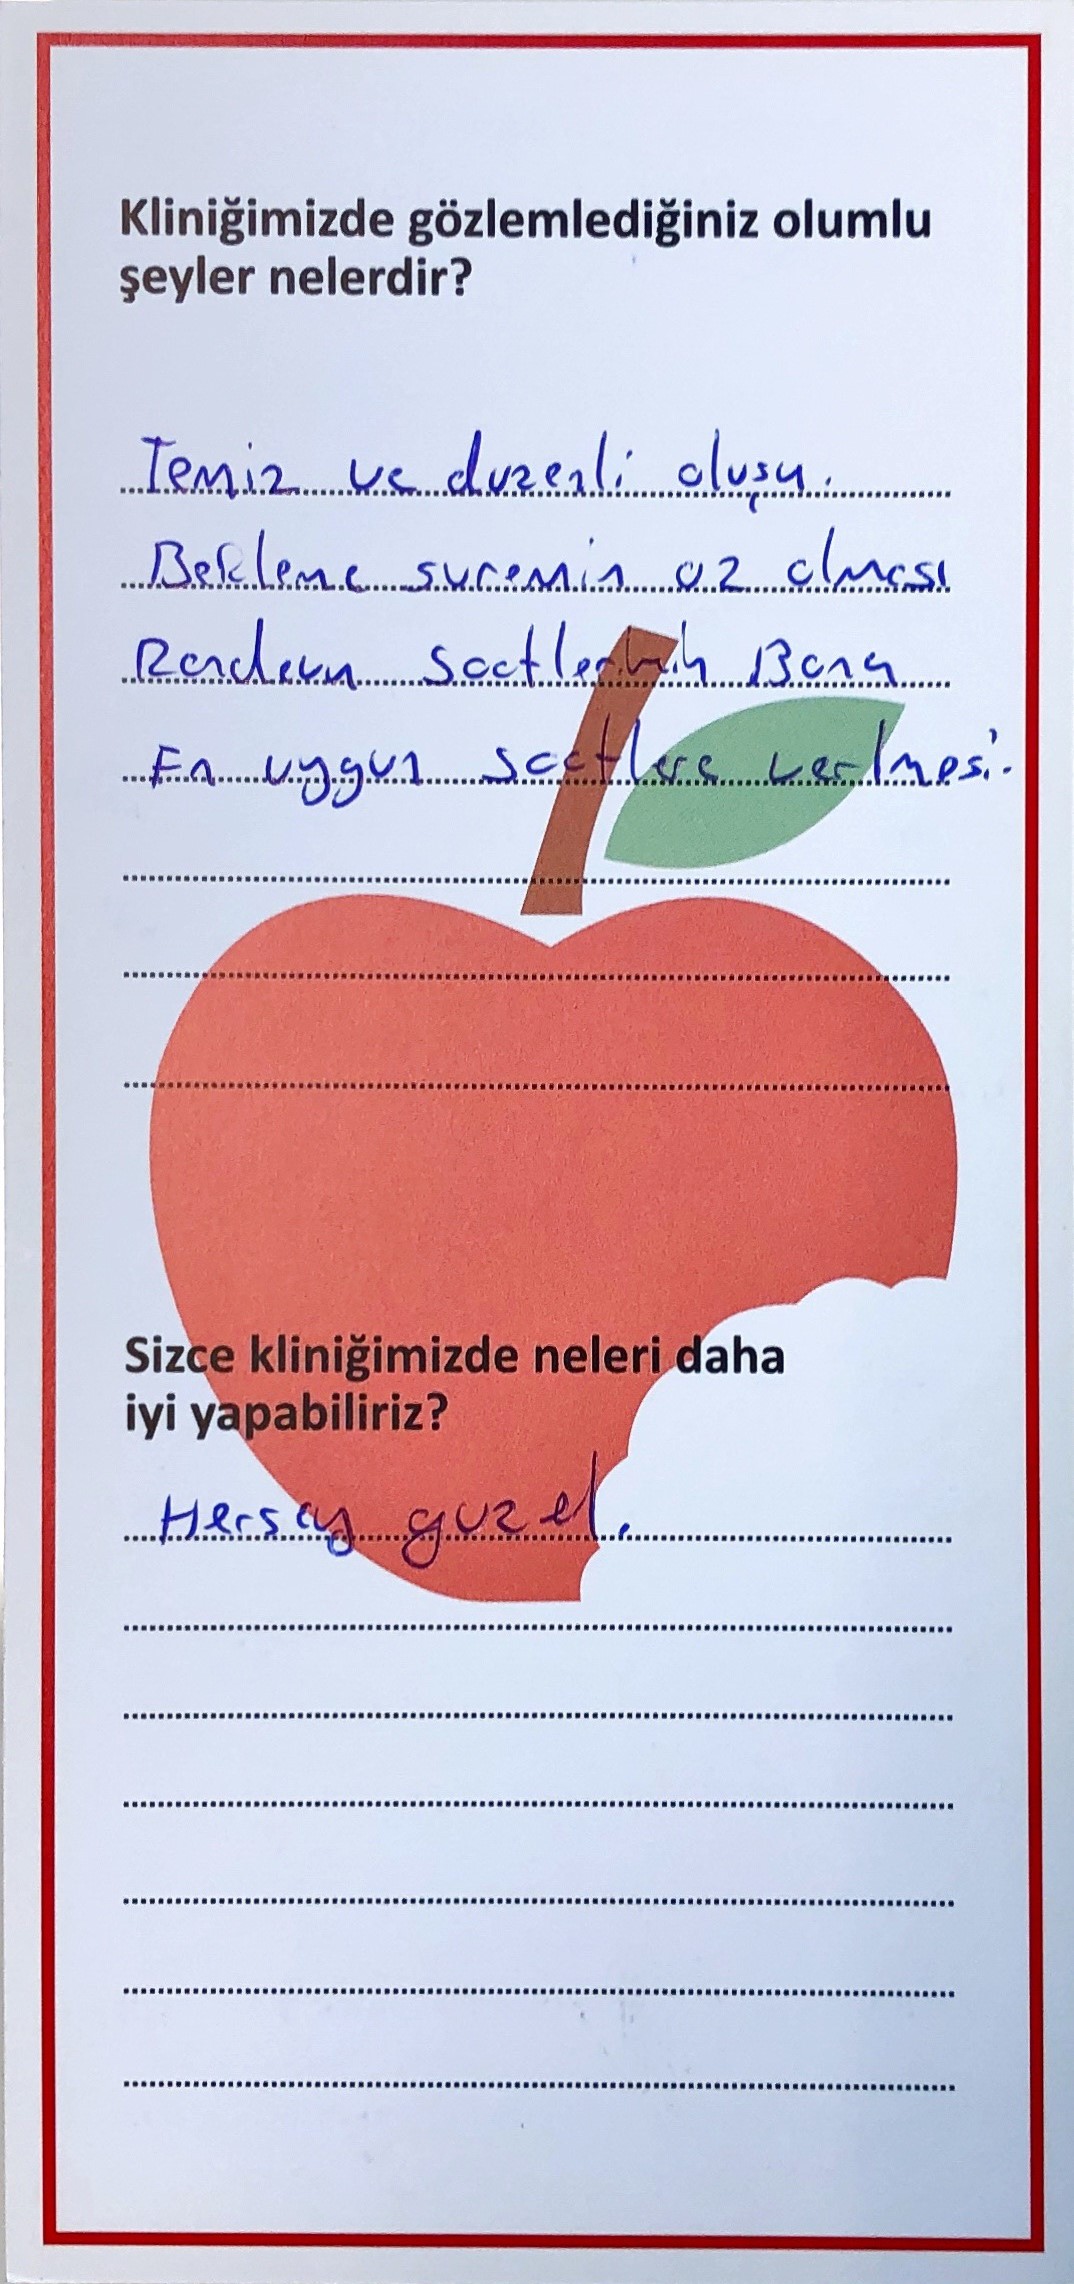 Kliniğimizde gözlemlediğiniz olumlu
şeyler nelerdir?
Temiz ve duzenli oluşu.
Bekleme suremin az olması
Randevu saatlerinin Bana
En uygun saatlere verlmesi.
Sizce kliniğimizde neleri daha
iyi yapabiliriz?
Hersey guzel.